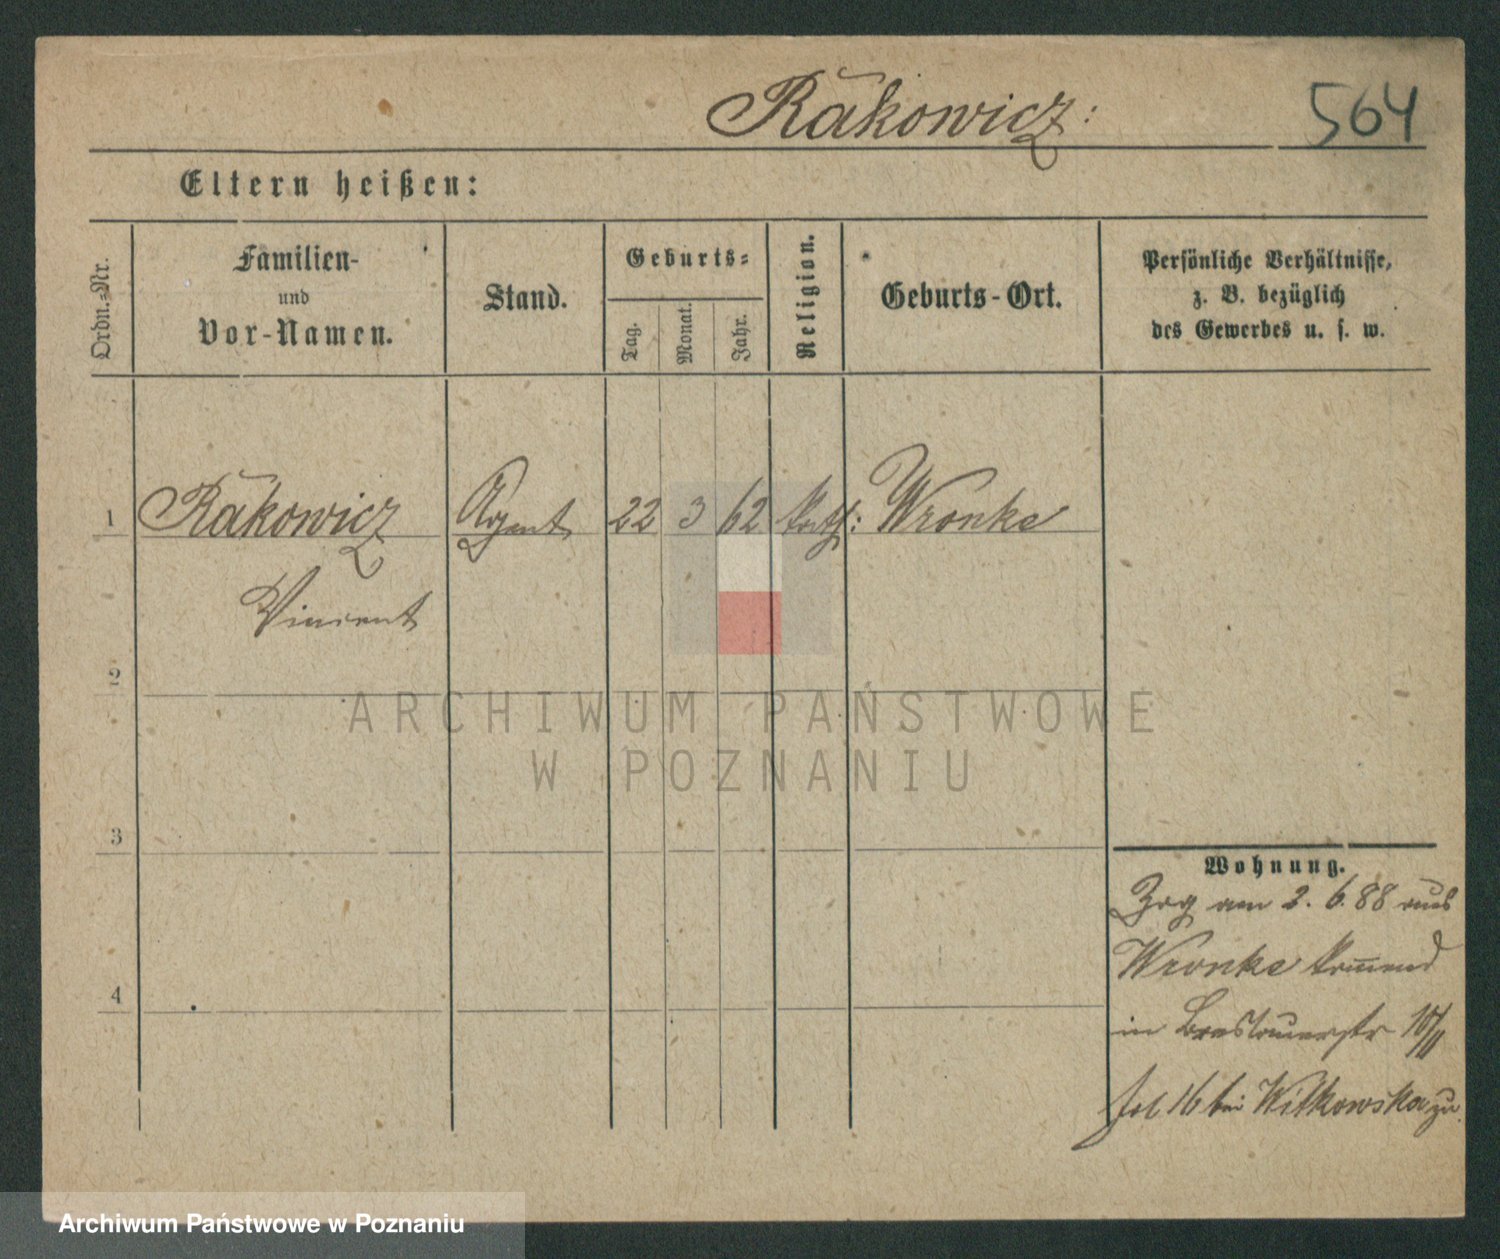 Rakowicz:
564
Eltern heißen:
Ordn.=Nr.
Familien-
und
Vor-Namen.
Stand.
Geburts=
Tag.
Monat.
Jahr.
Religion.
Geburts-Ort.
Persönliche Verhältnisse,
z. B. bezüglich
des Gewerbes u. s. w.
1 Rakowicz Agent 22 3 62 kath: Wronke
Vincent
2
3
4
Wohnung.
Zog am 2. 6. 88 aus
Wronke kommend
in Breslauerstr 10/11
fol 16 bei Witkowska zu.
ARCHIWUM PAŃSTWOWE
W POZNANIU
Archiwum Państwowe w Poznaniu